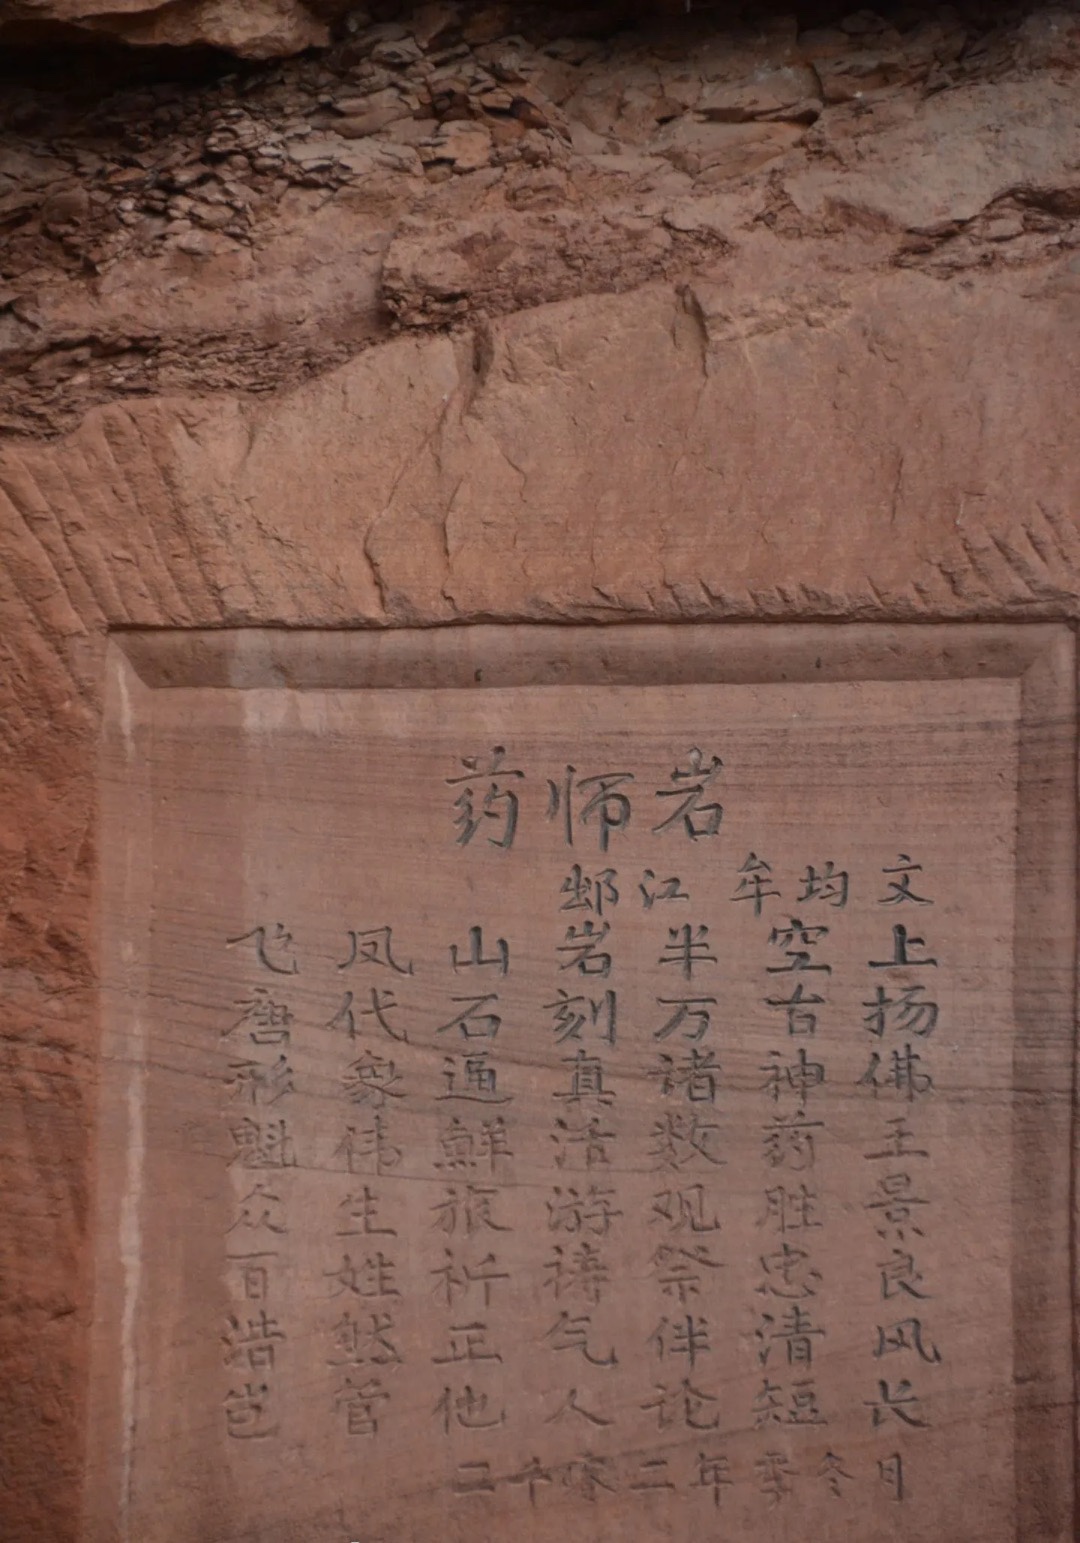 药师岩
䢺江 牟均文
飞凤山岩半空上
唐代石刻万古扬
形象逼真诸神佛
魁伟鲜活数药王
众生旅游观胜景
百姓祈祷祭忠良
浩然正气伴清风
岂管他人论短长
二千零二年季冬日